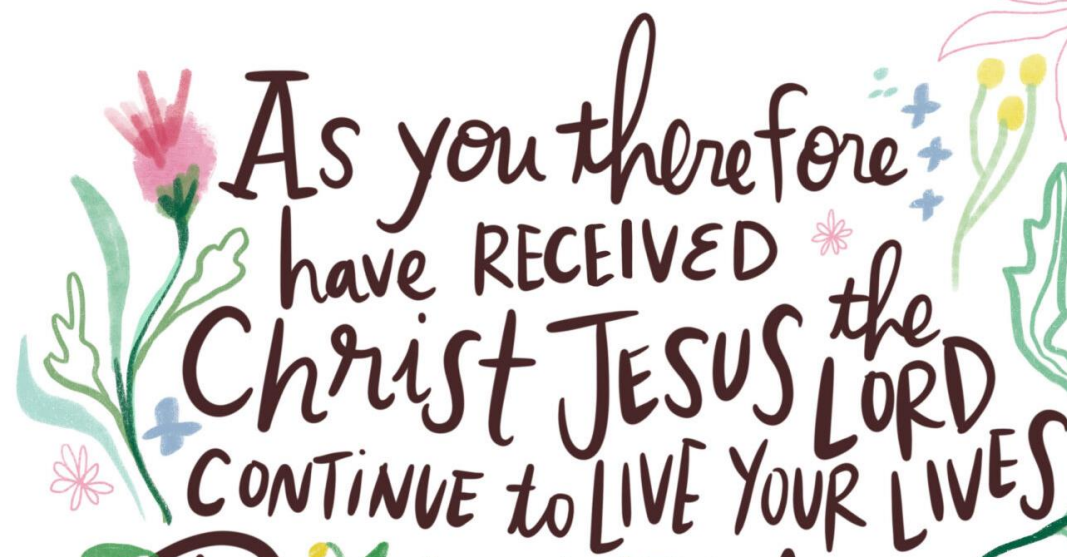 As you therefore
have RECEIVED
Christ JESUS the LORD
CONTINUE to LIVE YOUR LIVES